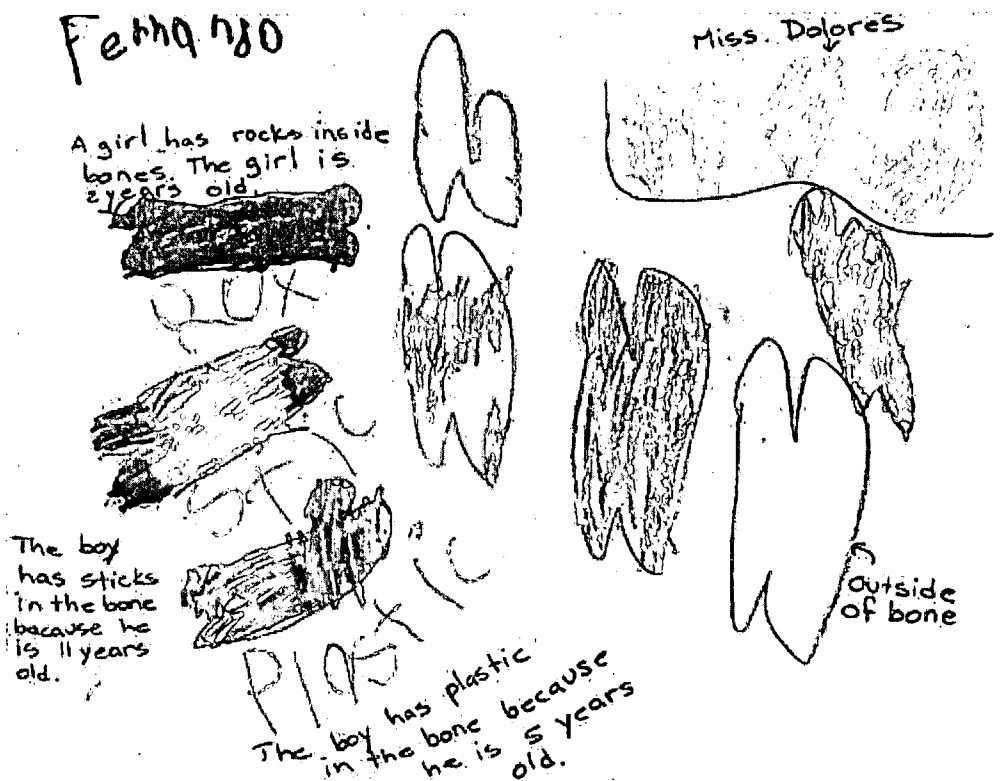 Fernando
Miss. Dolores
A girl has rocks inside
bones. The girl is
2 years old.
The boy
has sticks
in the bone
bacause he
is 11 years
old.
outside
of bone
The boy has plastic
in the bone because
he is 5 years
old.